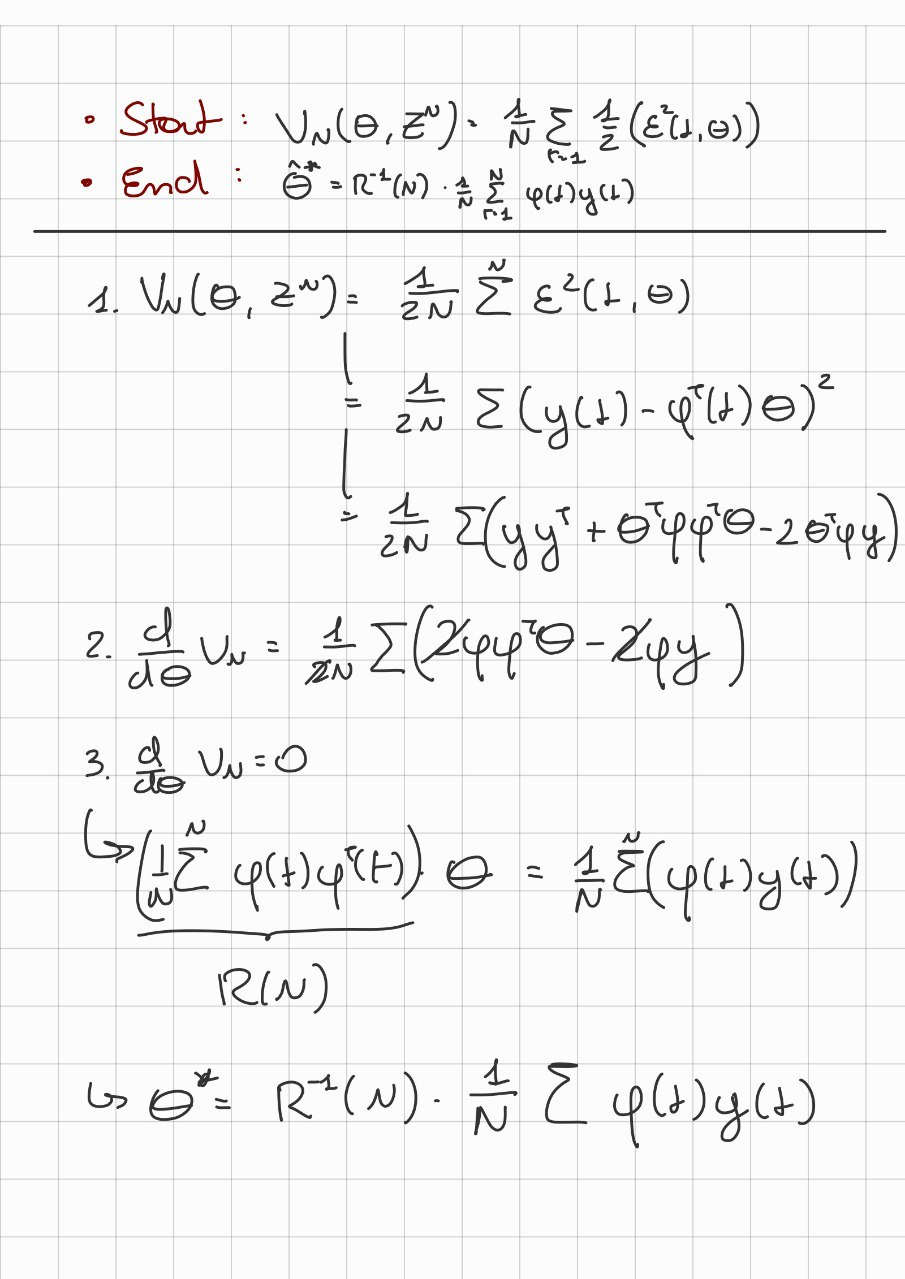 • Start : V_N(θ, Z^N) = 1/N Σ_{t=1} 1/2 (ε²(t,θ))
• End : θ̂* = R⁻¹(N) · 1/N Σ_{t=1}^N φ(t)y(t)
1. V_N(θ, Z^N) = 1/2N Σ^N ε²(t,θ)
= 1/2N Σ(y(t) - φᵀ(t)θ)²
= 1/2N Σ(yyᵀ + θᵀφφᵀθ - 2θᵀφy)
2. d/dθ V_N = 1/2N Σ(2φφᵀθ - 2φy)
3. d/dθ V_N = 0
↳ (1/N Σ^N φ(t)φᵀ(t)) θ = 1/N Σ^N(φ(t)y(t))
R(N)
↳ θ* = R⁻¹(N) · 1/N Σ φ(t)y(t)